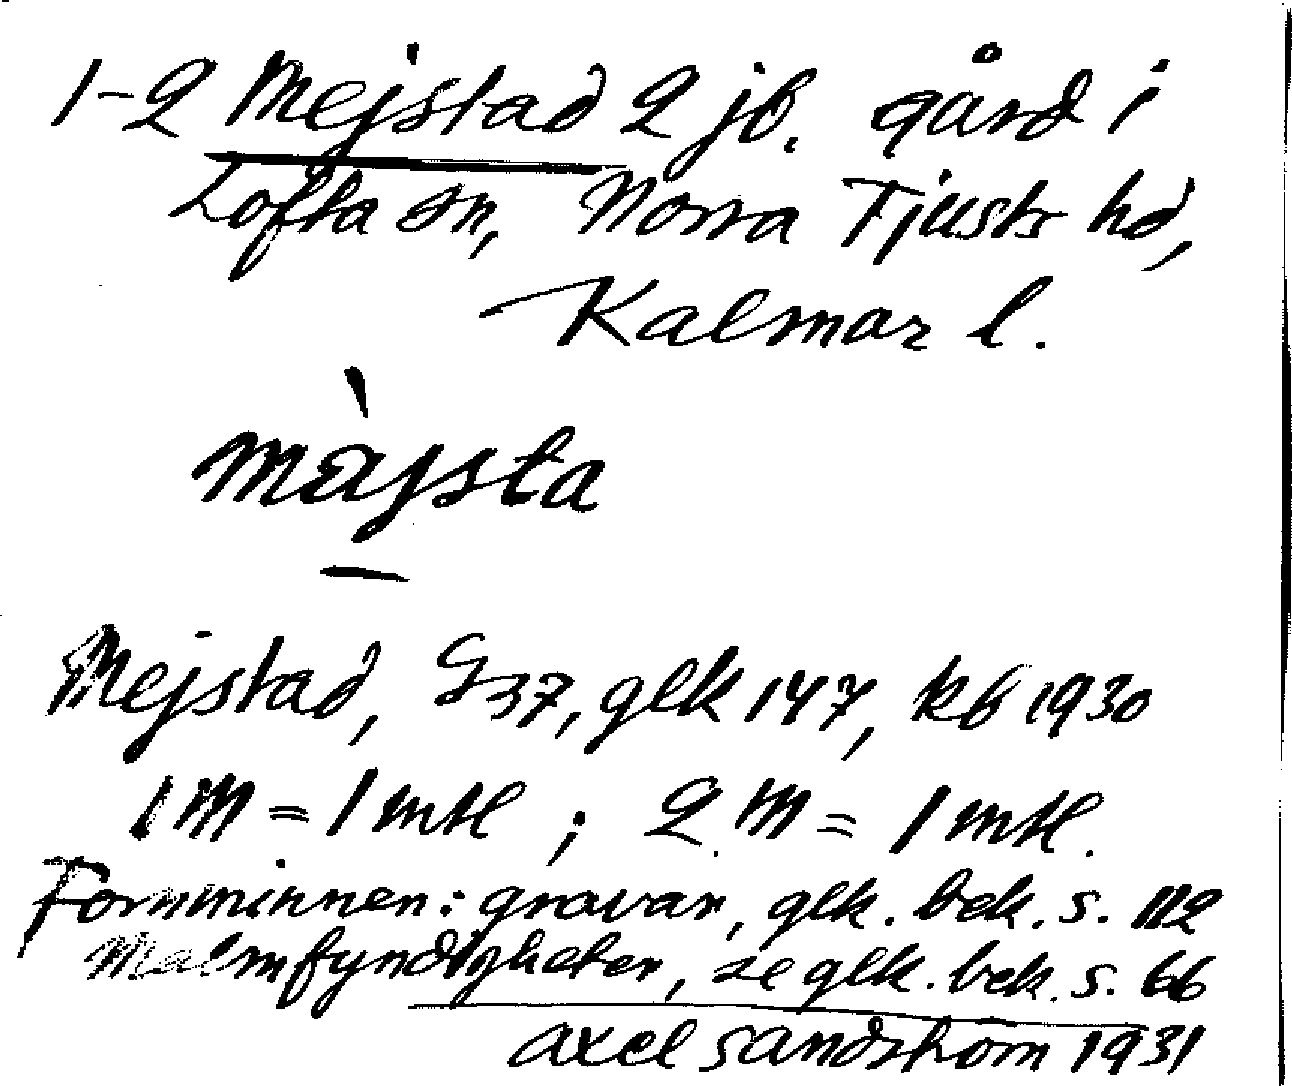 1-2 Mejstad 2 jb. gård i
Lofta sn, Norra Tjusts hd,
Kalmar l.
màjsta
Mejstad, G 37, glk 147, kb 1930
1 M = 1 mtl ; 2 M = 1 mtl.
Fornminnen: gravar, glk. bek. s. 112
Malmfyndigheter, se glk. bek. s. 66
Axel Sandström 1931